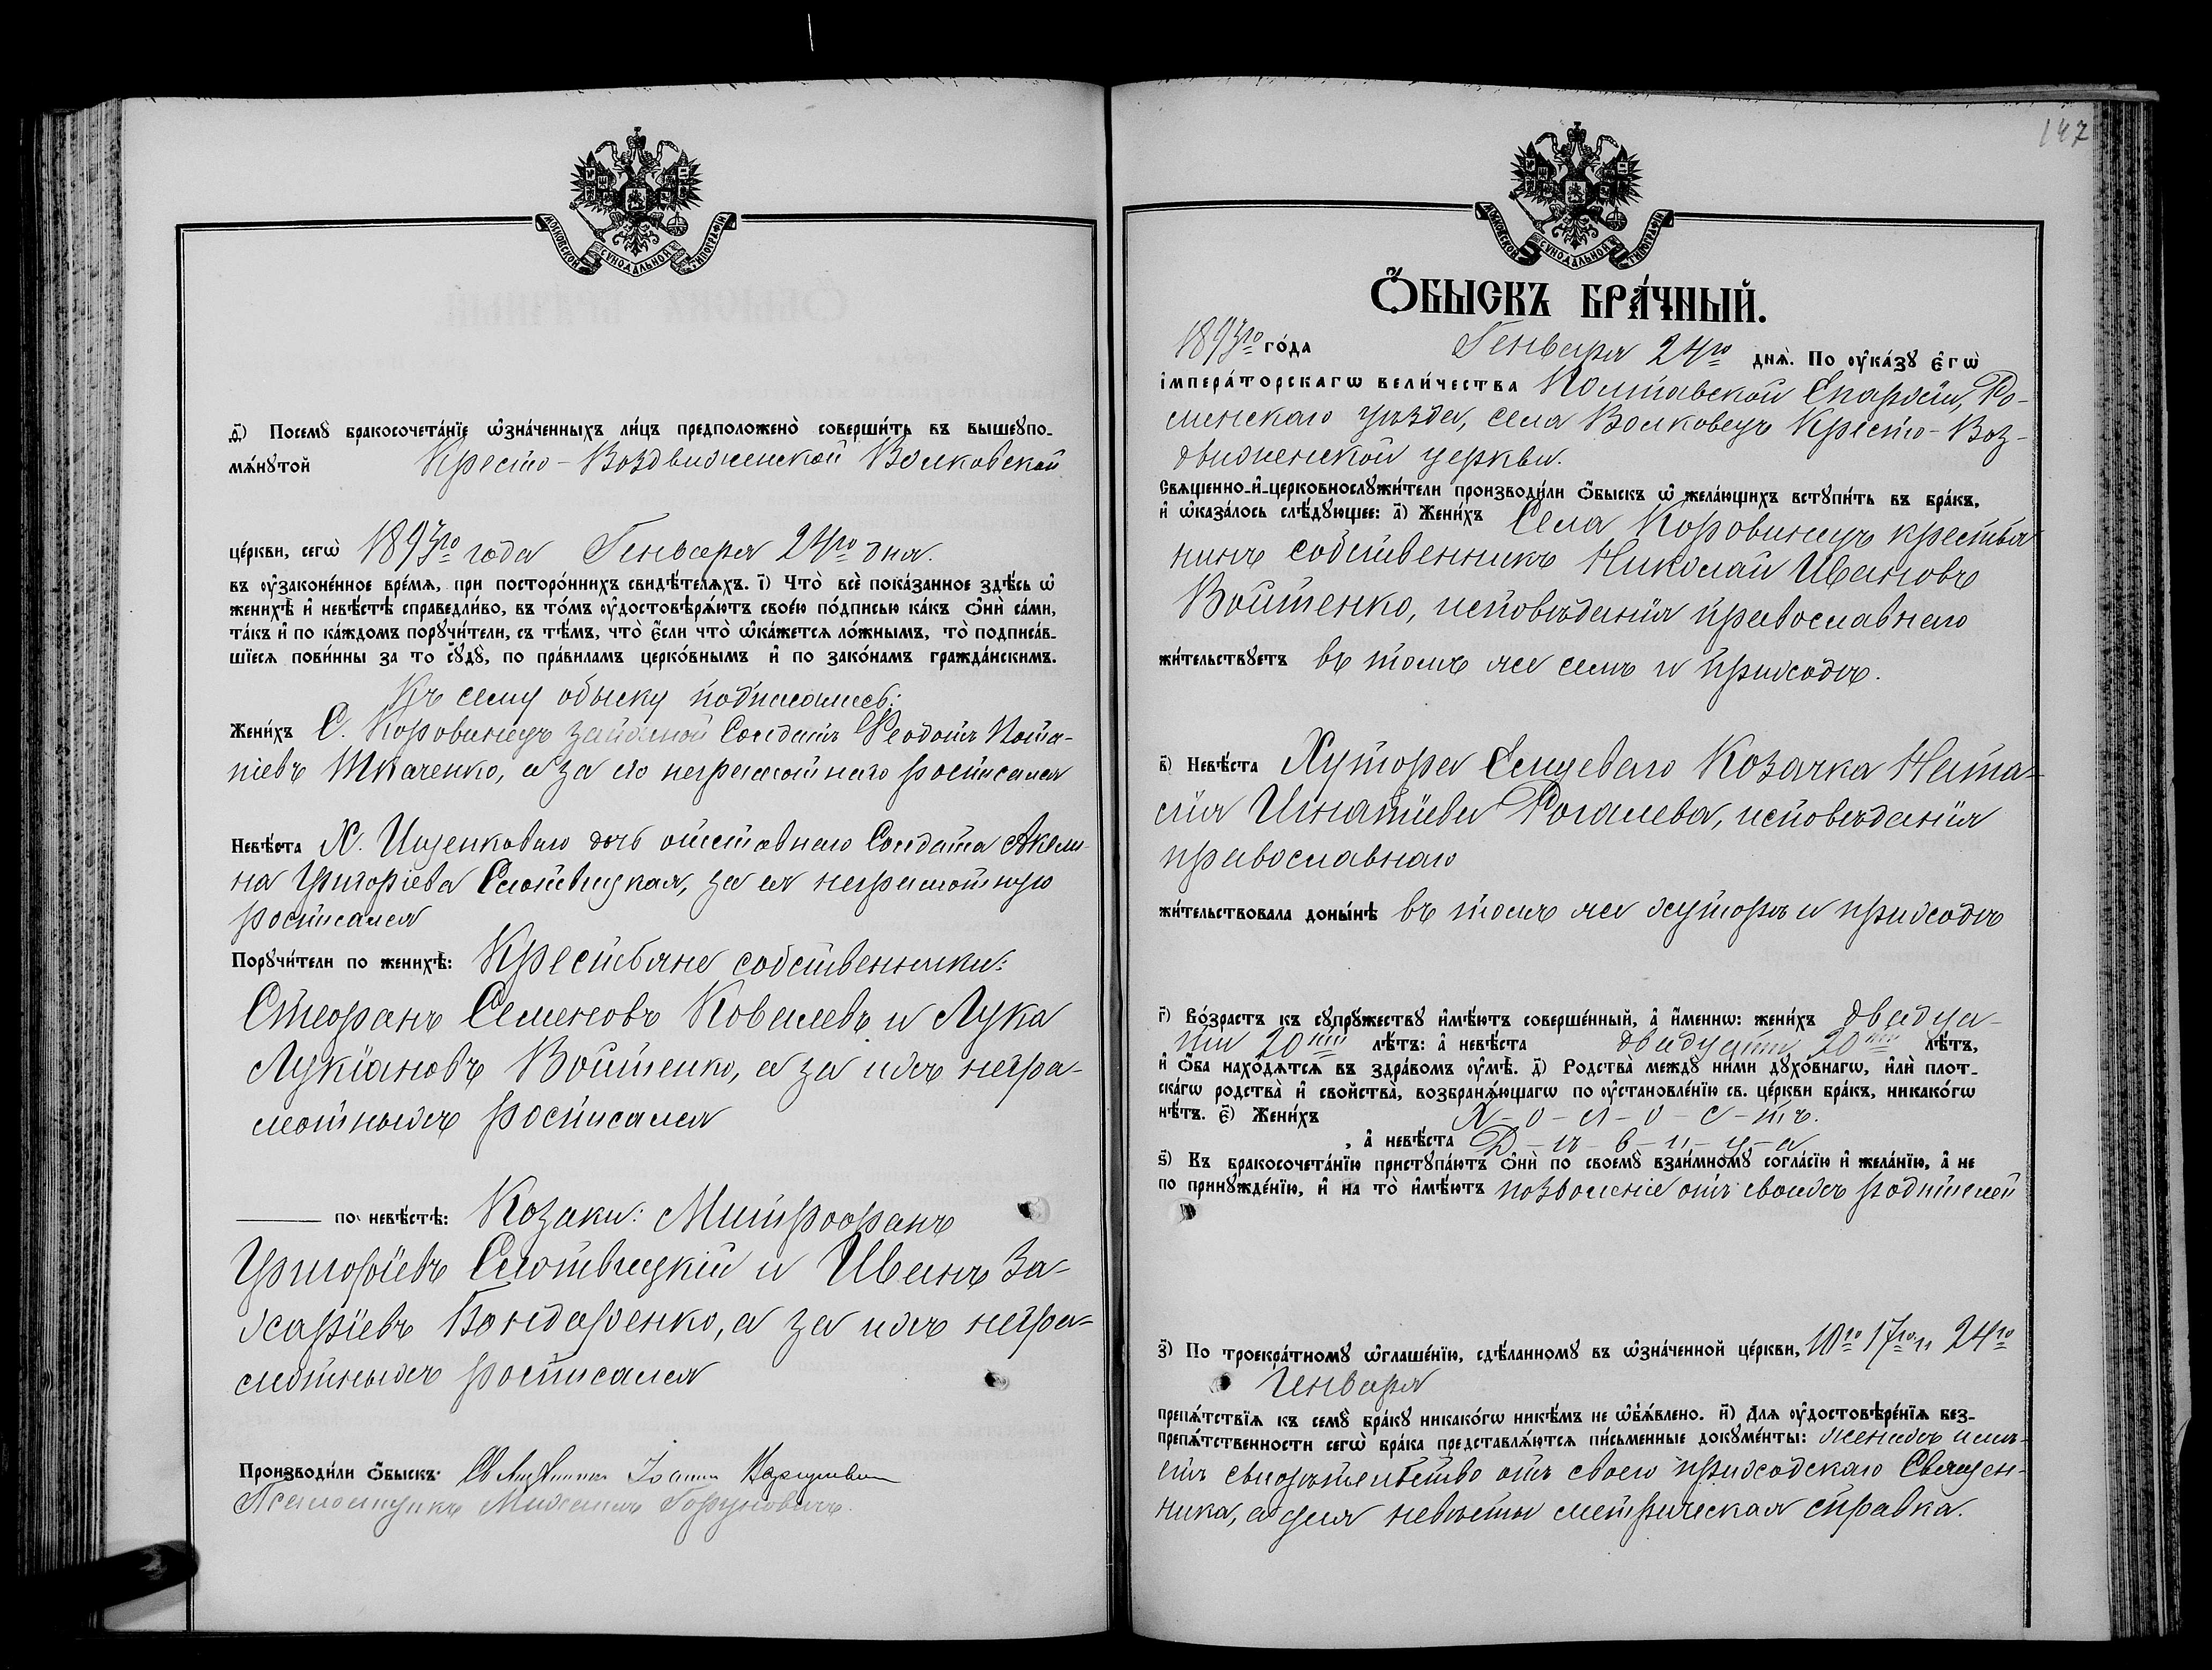 МОСКОВСКОЙ СѴНОДАЛЬНОЙ ТИПОГРАФІИ
ѳ҃) Посемꙋ бракосочета́нїе ѡ҆зна́ченныхъ ли́цъ предположено̀ соверши́ть въ вышеꙋпо-
мѧ́нꙋтой Кресто-Воздвиженской Волковской
це́ркви, сегѡ̀ 1893го года Генваря 24го дня.
въ ᲂу҆законе́нное вре́мѧ, при посторо́ннихъ свидѣ́телѧхъ. і҃) Что̀ всѐ пока́занное здѣ́сь ѡ҆
женихѣ̀ и҆ невѣ́стѣ справедли́во, въ то́мъ ᲂу҆достовѣрѧ́ютъ свое́ю по́дписью ка́къ ѻ҆нѝ са́ми,
та́къ и҆ по ка́ждомъ порꙋчи́тели, съ тѣ́мъ, что̀ є҆́сли что̀ ѡ҆ка́жетсѧ ло́жнымъ, то̀ подписа́в-
шїесѧ пови́нны за то сꙋдꙋ̀, по пра́виламъ церко́внымъ и҆ по зако́намъ гражда́нскимъ.
Къ сему обыску подписались:
Жени́хъ С. Коровинецъ запасной Солдатъ Феодотъ Пота-
піевъ Ткаченко, а за его неграмотнаго росписался
Невѣ́ста Х. Ищенковаго дочь отставнаго Солдата Акили-
на Григоріева Слотвицкая, за ея неграмотную
росписался
Порꙋчи́тели по женихѣ̀: Крестьяне собственники:
Стефанъ Семеновъ Ковалевъ и Лука
Лукіановъ Войтенко, а за ихъ негра-
мотныхъ росписался
по невѣ́стѣ: Козаки: Митрофанъ
Григоріевъ Слотвицкій и Иванъ За-
харіевъ Бондаренко, а за ихъ негра-
мотныхъ росписался
Производи́ли ѻ҆́быскъ: Священникъ Іоаннъ
Псаломщикъ Михаилъ Горуновичъ.
147
МОСКОВСКОЙ СѴНОДАЛЬНОЙ ТИПОГРАФІИ
Ѻ҆́БЫСКЪ БРА́ЧНЫЙ.
1893го го́да Генваря 24го днѧ̀. По ᲂу҆ка́зꙋ є҆гѡ̀
і҆мпера́торскагѡ вели́чества Полтавской Епархіи, Ро-
менскаго уѣзда, села Волковецъ Кресто-Воз-
движенской церкви.
Свѧщенно-и҆-церковнослꙋжи́тели производи́ли ѻ҆́быскъ ѡ҆ жела́ющихъ встꙋпи́ть въ бра́къ,
и҆ ѡ҆каза́лось слѣ́дꙋющее: а҃) Жени́хъ Села Коровинецъ крестья
нинъ собственникъ Николай Ивановъ
Войтенко, исповѣданія православнаго
жи́тельствꙋетъ въ томъ же селѣ и приходѣ.
в҃) Невѣ́ста Хутора Сенцеваго Козачка Ната-
лія Игнатіева Рогалева, исповѣданія
православнаго
жи́тельствовала доны́нѣ въ томъ же хуторѣ и приходѣ
г҃) Во́зрастъ къ сꙋпрꙋжествꙋ и҆мѣ́ютъ соверше́нный, а҆ и҆́меннѡ: жени́хъ двадца-
ти 20ти лѣ́тъ: а҆ невѣ́ста двадцати 20ти лѣ́тъ,
и҆ ѻ҆́ба нахо́дѧтсѧ въ здра́вомъ ᲂу҆мѣ̀. д҃) Родства̀ междꙋ ни́ми дꙋхо́внагѡ, и҆лѝ плот-
ска́гѡ родства̀ и҆ свойства̀, возбранѧ́ющагѡ по ᲂу҆становле́нїю св. це́ркви бра́къ, никако́гѡ
нѣ́тъ. є҃) Жени́хъ Х-о-л-о-с-тъ.
, а҆ невѣ́ста Д-ѣ-в-и-ц-а
ѕ҃) Къ бракосочета́нїю пристꙋпа́ютъ ѻ҆нѝ по своемꙋ̀ взаи́мномꙋ согла́сїю и҆ жела́нїю, а҆ не
по принꙋжде́нїю, и҆ на то̀ и҆мѣ́ютъ позволеніе отъ своихъ родителей
з҃) По троекра́тномꙋ ѡ҆глаше́нїю, сдѣ́ланномꙋ въ ѡ҆зна́ченной це́ркви, 10го 17го и 24го
Генваря
препѧ́тствїѧ къ семꙋ̀ бра́кꙋ никако́гѡ никѣ́мъ не ѡ҆б̾ѧ́влено. и҃) Для ᲂу҆достовѣре́нїѧ без-
препѧ́тственности сегѡ̀ бра́ка представлѧ́ютсѧ пи́сьменные докꙋме́нты: женихъ имѣ-
етъ свидѣтельство отъ своего приходскаго Священ-
ника, а для невѣсты метрическая справка.